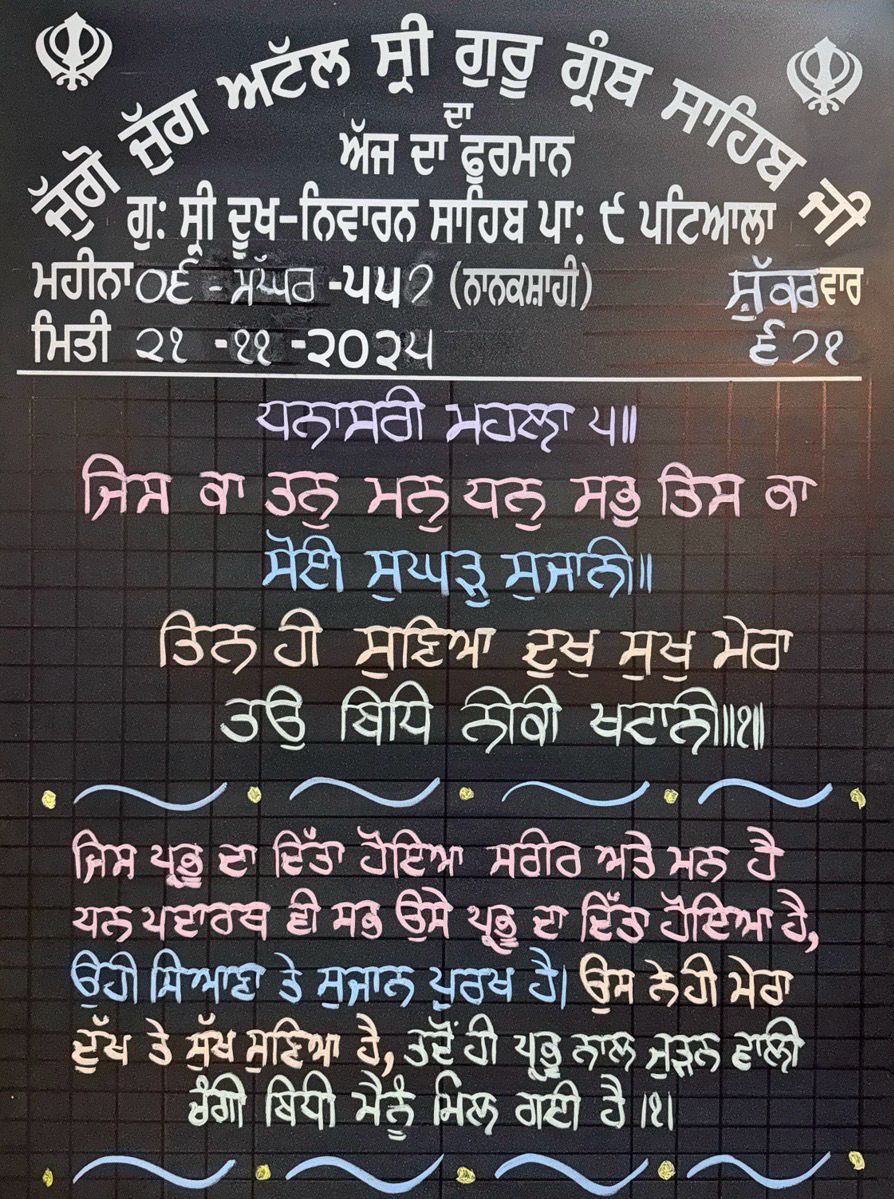 ਜੁੱਗੋ ਜੁੱਗ ਅਟੱਲ ਸ੍ਰੀ ਗੁਰੂ ਗ੍ਰੰਥ ਸਾਹਿਬ ਜੀ
ਦਾ
ਅੱਜ ਦਾ ਫੁਰਮਾਨ
ਗੁ: ਸ੍ਰੀ ਦੂਖ-ਨਿਵਾਰਨ ਸਾਹਿਬ ਪਾ: ੯ ਪਟਿਆਲਾ
ਮਹੀਨਾ ੦੬ - ਮੱਘਰ -੫੫੭ (ਨਾਨਕਸ਼ਾਹੀ) ਸ਼ੁੱਕਰਵਾਰ
ਮਿਤੀ ੨੧ -੧੧ -੨੦੨੫ ੬੭੧
ਧਨਾਸਰੀ ਮਹਲਾ ੫॥
ਜਿਸ ਕਾ ਤਨੁ ਮਨੁ ਧਨੁ ਸਭੁ ਤਿਸ ਕਾ
ਸੋਈ ਸੁਘੜੁ ਸੁਜਾਨੀ॥
ਤਿਨ ਹੀ ਸੁਣਿਆ ਦੁਖੁ ਸੁਖੁ ਮੇਰਾ
ਤਉ ਬਿਧਿ ਨੀਕੀ ਖਟਾਨੀ॥੧॥
ਜਿਸ ਪ੍ਰਭੂ ਦਾ ਦਿੱਤਾ ਹੋਇਆ ਸਰੀਰ ਅਤੇ ਮਨ ਹੈ
ਧਨ ਪਦਾਰਥ ਵੀ ਸਭ ਉਸੇ ਪ੍ਰਭੂ ਦਾ ਦਿੱਤਾ ਹੋਇਆ ਹੈ,
ਉਹੀ ਸਿਆਣਾ ਤੇ ਸੁਜਾਨ ਪੁਰਖ ਹੈ। ਉਸ ਨੇ ਹੀ ਮੇਰਾ
ਦੁੱਖ ਤੇ ਸੁੱਖ ਸੁਣਿਆ ਹੈ, ਤਦੋਂ ਹੀ ਪ੍ਰਭੂ ਨਾਲ ਜੁੜਨ ਵਾਲੀ
ਚੰਗੀ ਬਿਧੀ ਮੈਨੂੰ ਮਿਲ ਗਈ ਹੈ ।੧।